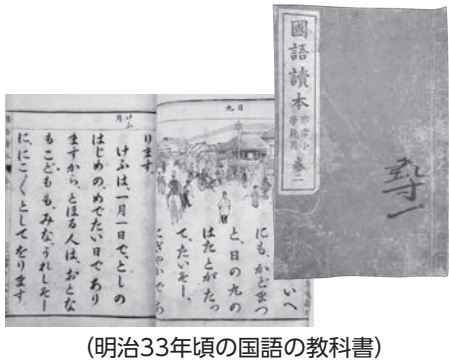 國語讀本
尋常小
學校用
巻二
尋一
日丸
いへ
にも、かどまつ
と、日の丸の
はたとがたっ
て、たいそー、
にぎやかであ
けふ
月
ります。
けふは、一月一日で、としの
はじめの、めでたい日であり
ますから、とほる人は、おとな
もこどもも、みな、うれしそー
に、にこ〱としてをります
(明治33年頃の国語の教科書)